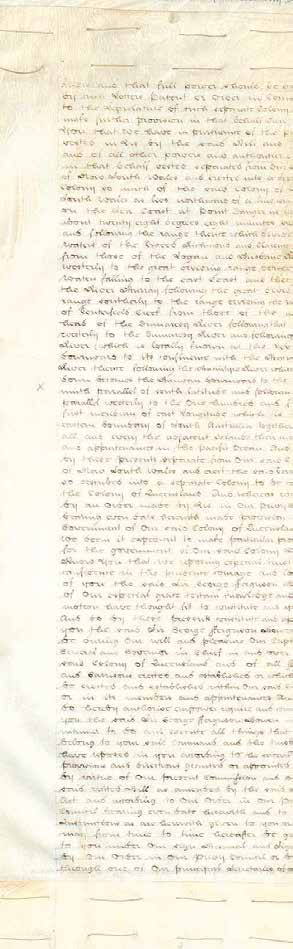 thereto and that full power should be
by such Letters Patent or Order in
to the Legislature of such separate Colony
make further provision in that behalf
You that We have in pursuance of the
vested in Us by the said Bill and
and of all other powers and authorities
in that behalf vested separated from Our
of New South Wales and erected into a
Colony so much of the said Colony of
South Wales as lies northward of a line
on the Sea Coast at Point Danger in
about twenty eight degrees eight minutes
and following the range thence which divides
waters of the Tweed Richmond and Clarence
from those of the Logan and Brisbane
westerly to the great dividing range between
waters falling to the East Coast and
the River Murray following the great
range southerly to the range dividing the
of Tenterfield Creek from those of the
head of the Dumaresq River following that
westerly to the Dumaresq River and following
River which is locally known as the
downwards to its confluence with the
River thence following the Macintyre River which
down becomes the Barwan downwards to the
ninth parallel of south latitude and following
parallel westerly to the One hundred and
first meridian of east longitude which is
eastern boundary of South Australia together
all and every the adjacent Islands their
and appurtenances in the Pacific Ocean And
by these presents separate from Our said
of New South Wales and erect the said
so described into a separate Colony to be
the Colony of Queensland And whereas
by an Order made by Us in Our Privy
bearing even date herewith made provision
Government of Our said Colony of
We deem it expedient to make particular
for the government of Our said Colony
Know You that We reposing especial trust
confidence in the prudence courage and
of you the said Sir George Ferguson
of Our especial grace certain knowledge and
motion have thought fit to constitute and
And do by these presents constitute and
you the said Sir George Ferguson Bowen
be during Our will and pleasure Our
General and Governor in Chief in and over
said Colony of Queensland and of all
and Garrisons erected and established or which
be erected and established within Our said
or in its members and appurtenances And
do hereby authorize empower require and
you the said Sir George Ferguson Bowen
manner to do and execute all things that
belong to your said command and the trust
have reposed in you according to the several
provisions and directions granted or appointed
by virtue of Our present Commission and
said recited Bill as amended by the said
Act and according to Our Order in Our
Council bearing even date herewith and to
Instructions as are herewith given to you or
may from time to time hereafter be
to you under Our Sign Manual and Signet
by Our Order in Our Privy Council or
through one of Our Principal Secretaries of